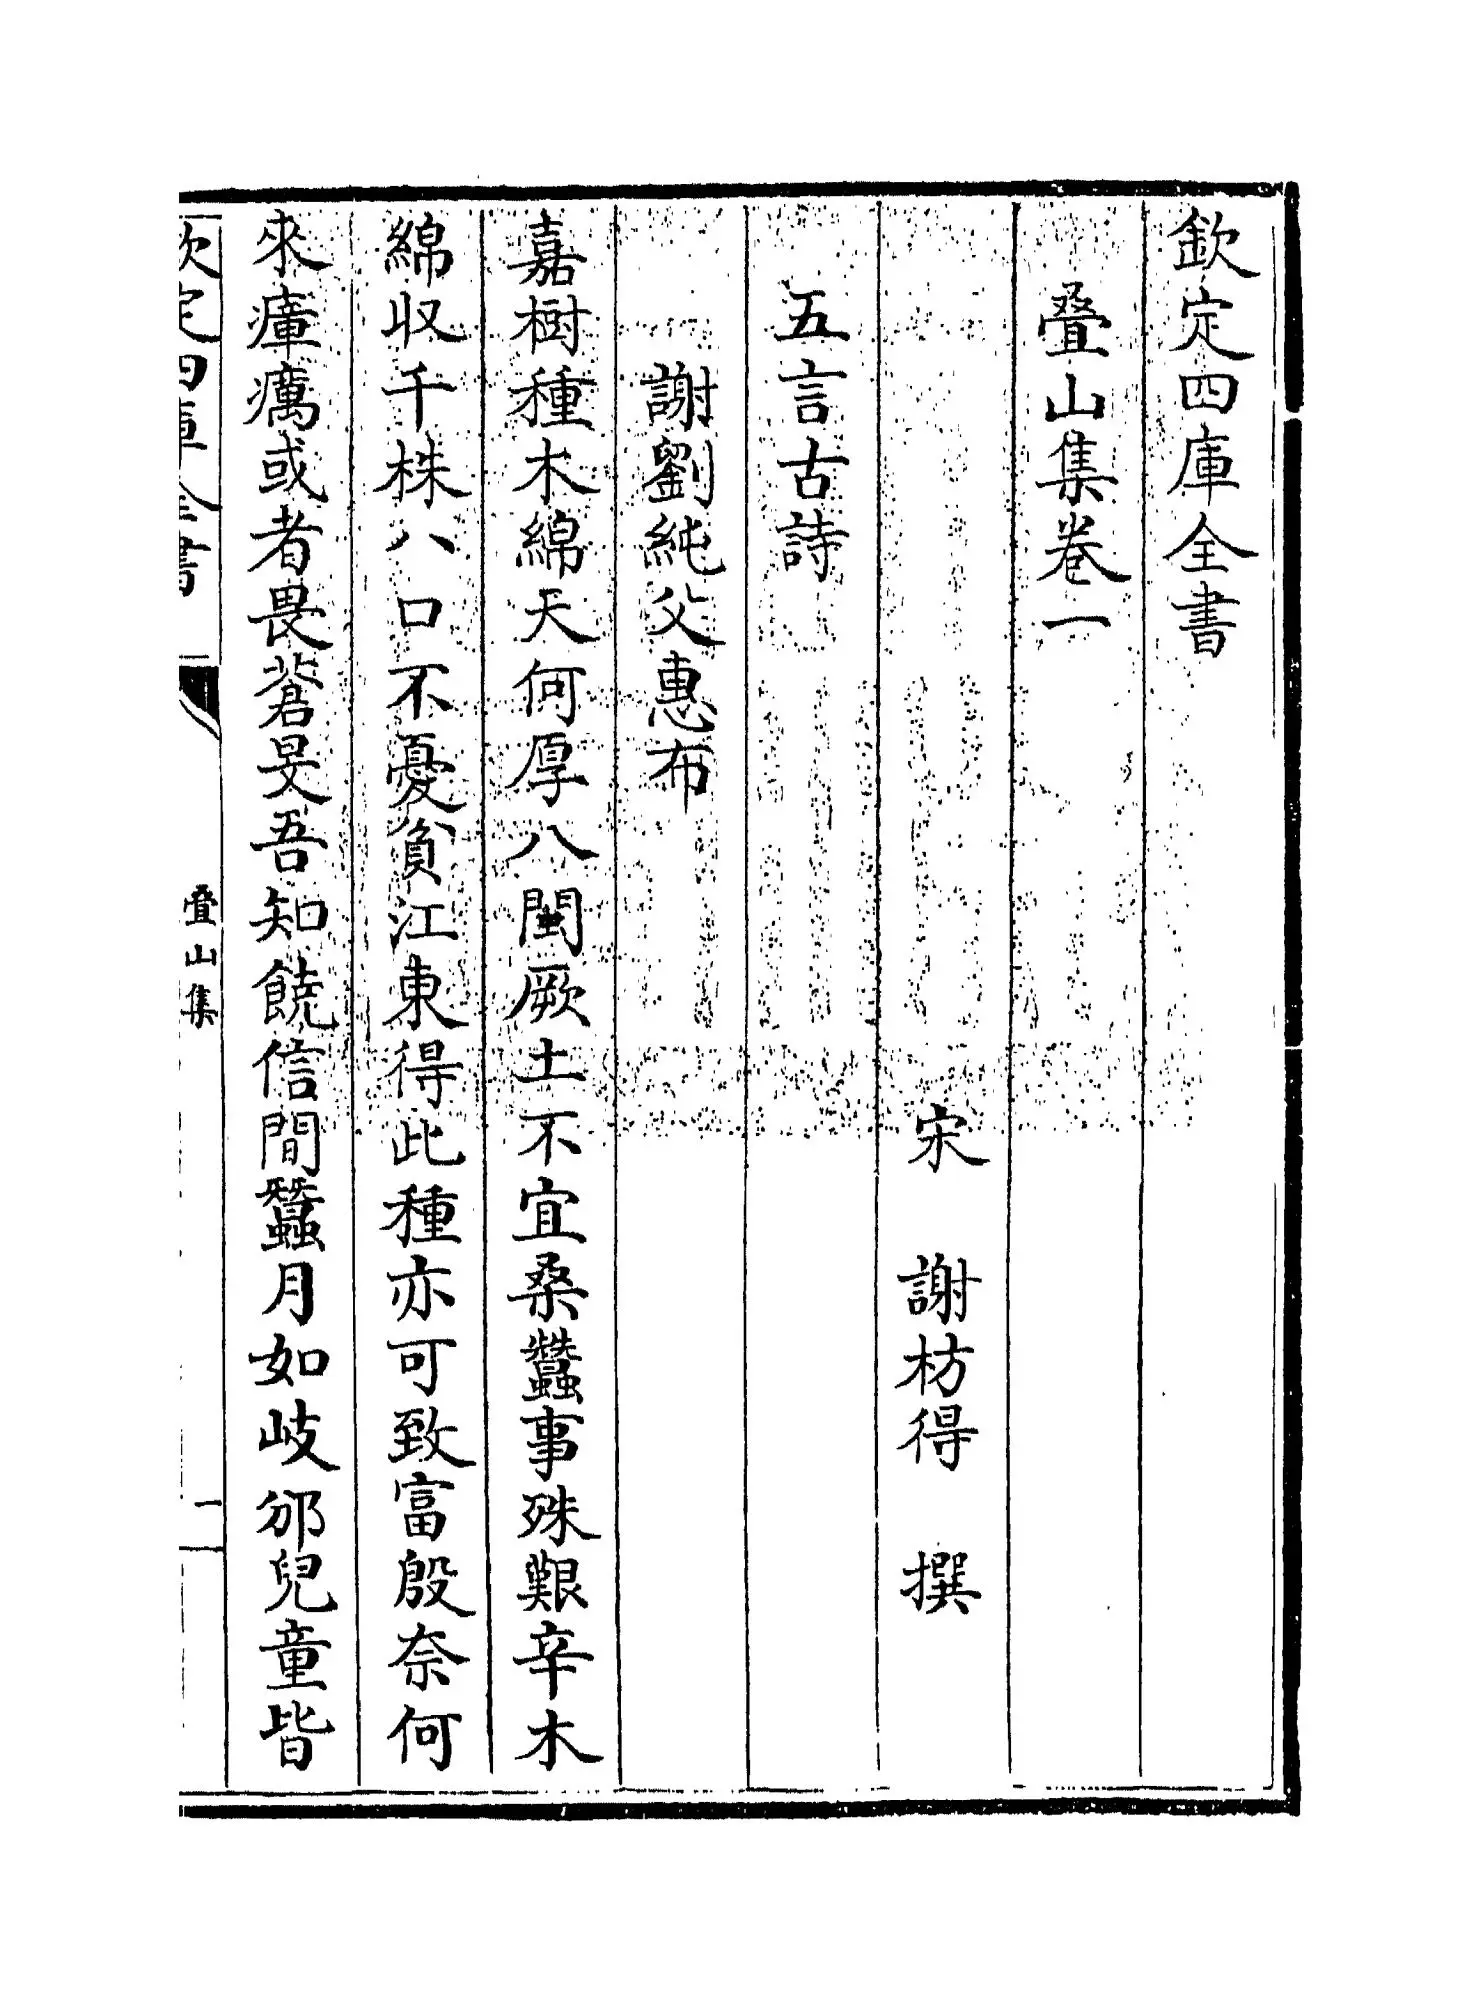 欽定四庫全書
疊山集卷一
宋　謝枋得　撰
五言古詩
謝劉純父惠布
嘉樹種木綿天何厚八閩厥土不宜桑蠶事殊艱辛木
綿収千株八口不憂貧江東得此種亦可致富殷奈何
來瘴癘或者畏蒼旻吾知饒信間蠶月如岐邠兒童皆
欽定四庫全書
疊山集
一